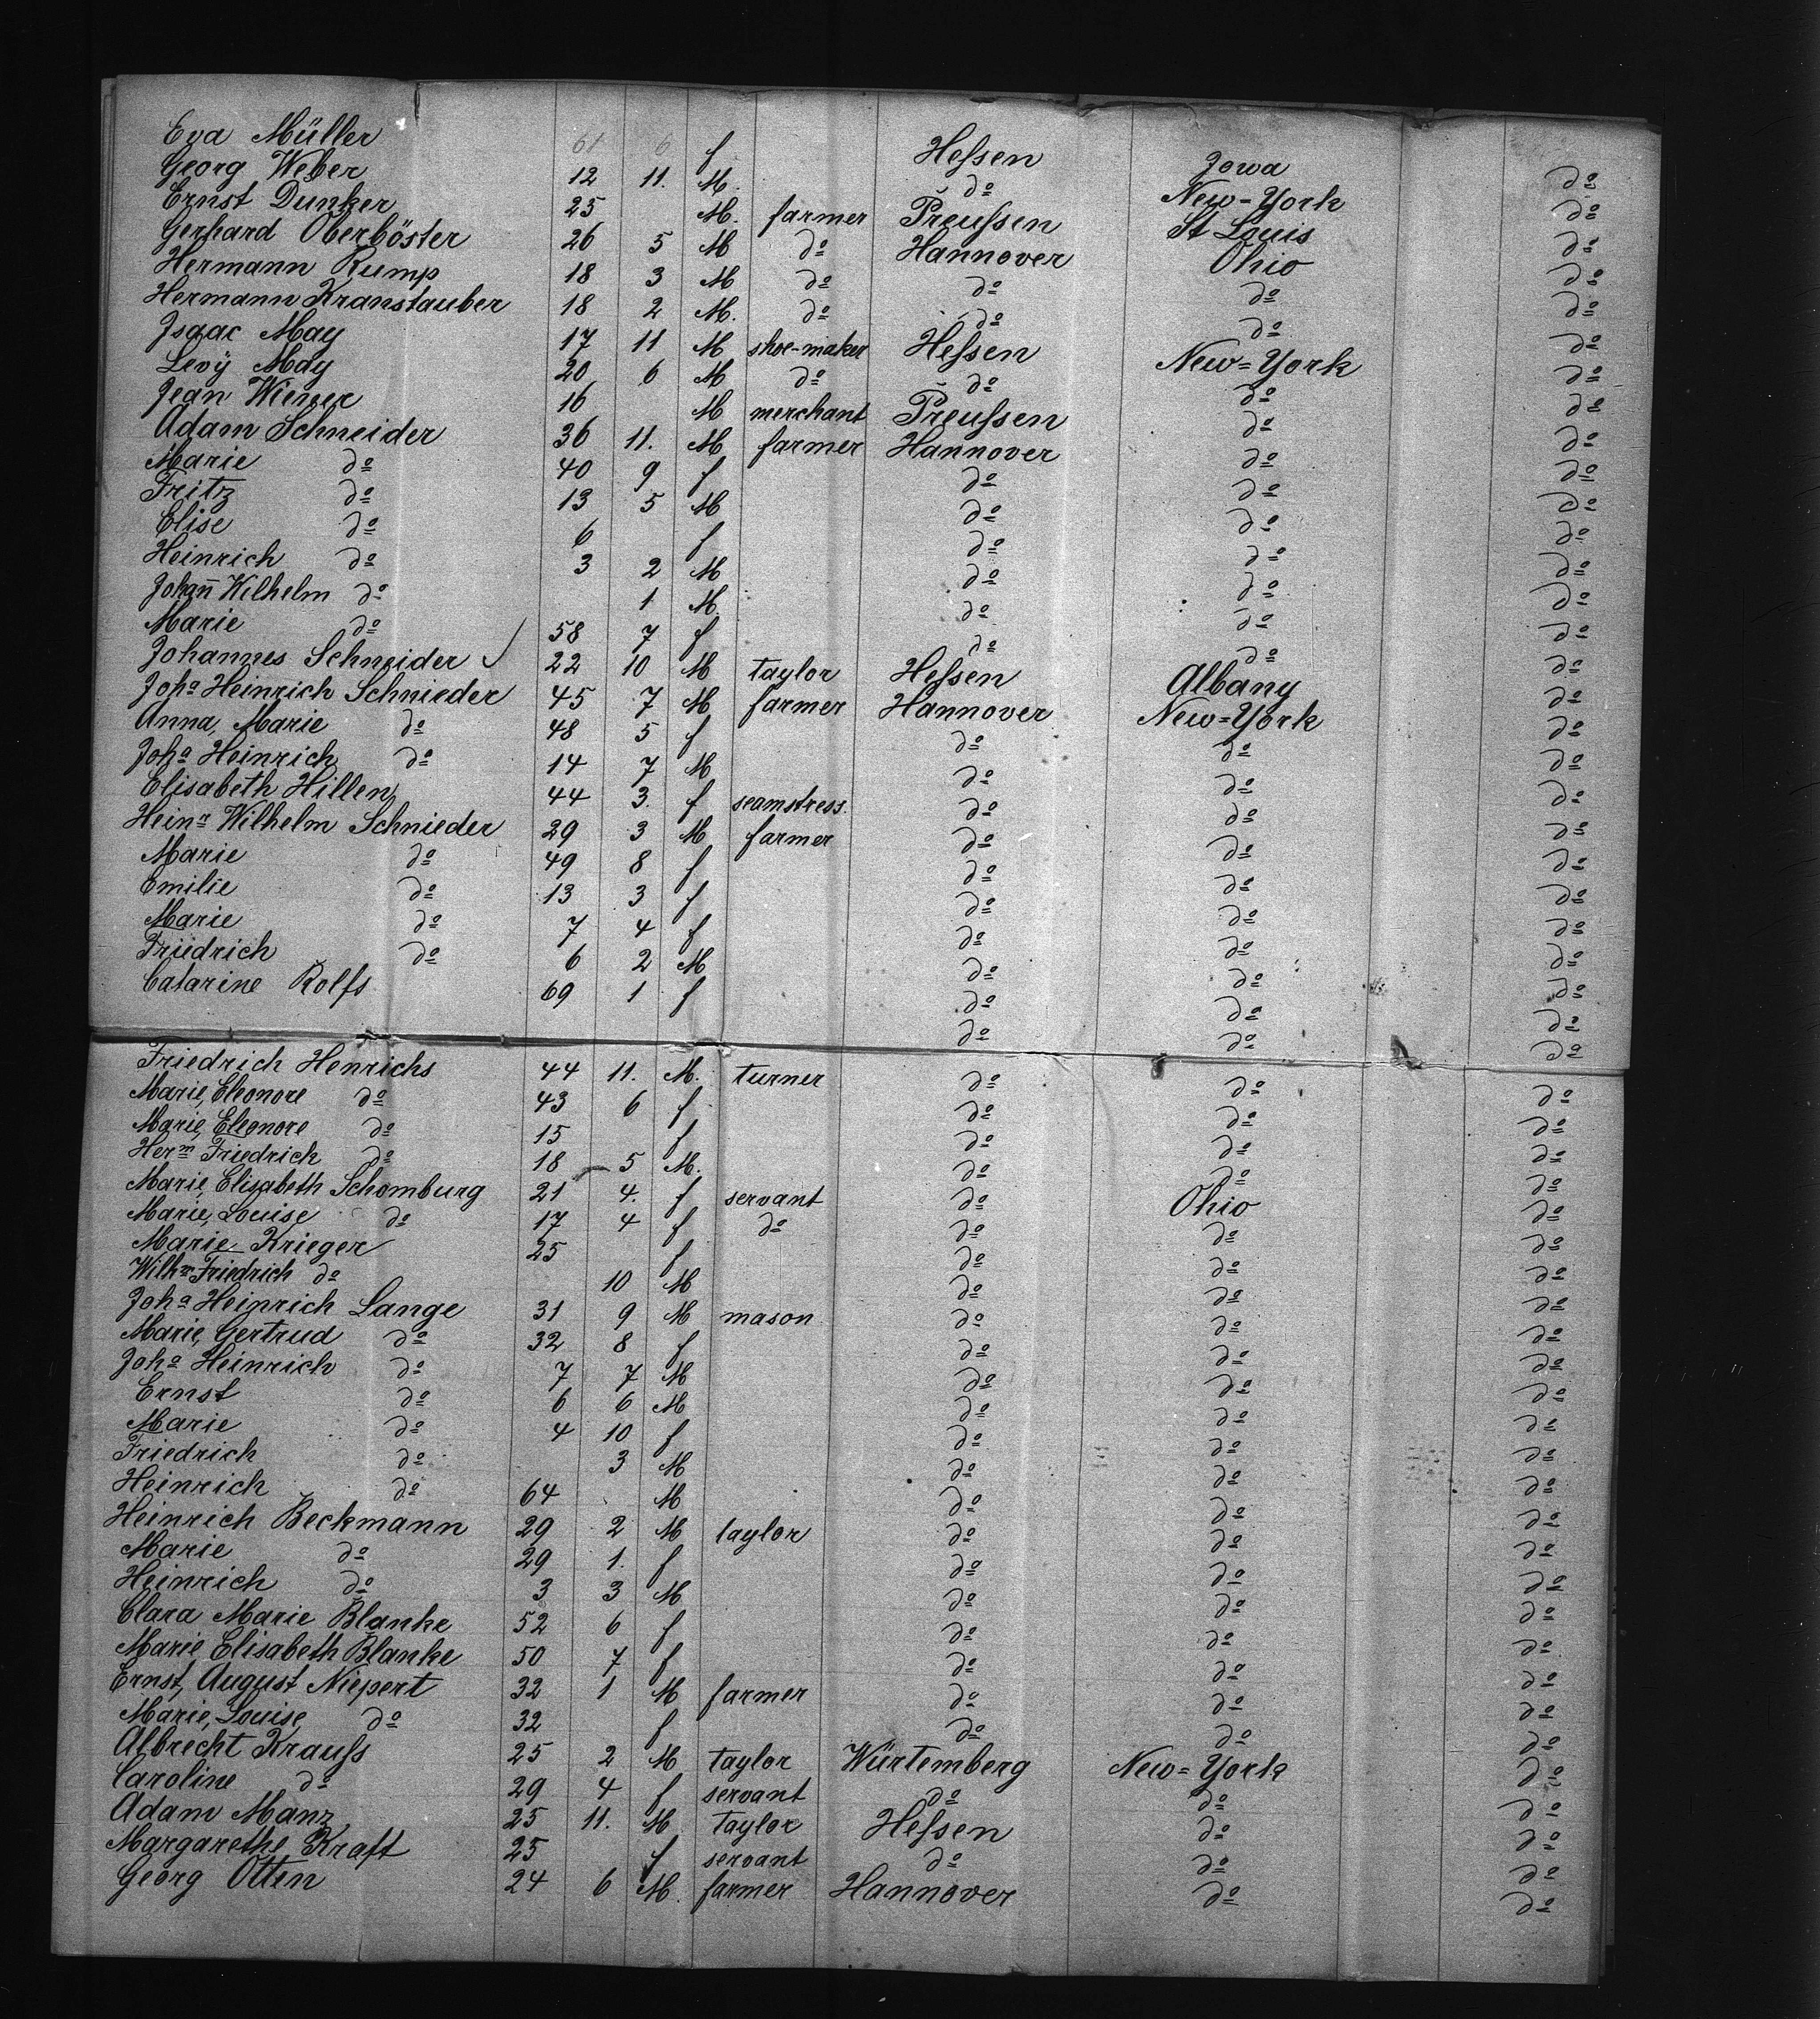 Eva Müller 61 6 f Heſsen Iowa do
Georg Weber 12 11. M. do New=York do
Ernst Dunker 25 M. farmer Preuſsen St Louis do
Gerhard Oberböster 26 5 M do Hannover Ohio do
Hermann Rump 18 3 M do do do do
Hermann Kranstauber 18 2 M. do do do do
Isaac May 17 11 M shoe-maker Heſsen New=York do
Levÿ May 20 6 M do do do do
Jean Wiener 16 M merchant Preuſsen do do
Adam Schneider 36 11. M farmer Hannover do do
Marie do 40 9 f do do do
Fritz do 13 5 M do do do
Elise do 6 f do do do
Heinrich do 3 2 M do do do
Johan̄ Wilhelm do 1 M. do do do
Marie do 58 7 f do do do
Johannes Schneider 22 10 M taylor Heſsen Albany do
Joha Heinrich Schnieder 45 7 M farmer Hannover New=York do
Anna, Marie do 48 5 f do do do
Joha Heinrich do 14 7 M do do do
Elisabeth Hillen 44 3. f seamstress. do do do
Heinr Wilhelm Schnieder 29 3 M farmer do do do
Marie do 49 8 f do do do
Emilie do 13 3 f do do do
Marie do 7 4 f do do do
Friedrich do 6 2 M do do do
Catarine Rolfs 69 1 f do do do
Friedrich Henrichs 44 11. M. turner do do do
Marie, Eleonore do 43 6 f do do do
Marie, Eleonore do 15 f do do do
Herm Friedrich do 18 5 M. do do do
Marie, Elisabeth Schomburg 21 4. f servant do Ohio do
Marie, Louise do 17 4 f do do do do
Marie Krieger 25 f do do do
Wilhm Friedrich do 10 M do do do
Joha Heinrich Lange 31 9 M mason do do do
Marie, Gertrud do 32 8 f do do do
Joha Heinrich do 7 7 M do do do
Ernst do 6 6 M do do do
Marie do 4 10 f do do do
Friedrich do 3 M do do do
Heinrich do 64 M do do do
Heinrich Beckmann 29 2 M taylor do do do
Marie do 29 1. f do do do
Heinrich do 3 3 M do do do
Clara Marie Blanke 52 6 f do do do
Marie, Elisabeth Blanke 50 7 f do do do
Ernst, August Niepert 32 1 M farmer do do do
Marie, Louise, do 32 f do do do
Albrecht Krauſs 25 2 M taylor Würtemberg New=York do
Caroline do 29 4 f servant do do do
Adam Manz 25 11. M taylor Heſsen do do
Margarethe Kraft 25 f servant do do do
Georg Otten 24 6 M. farmer Hannover do do